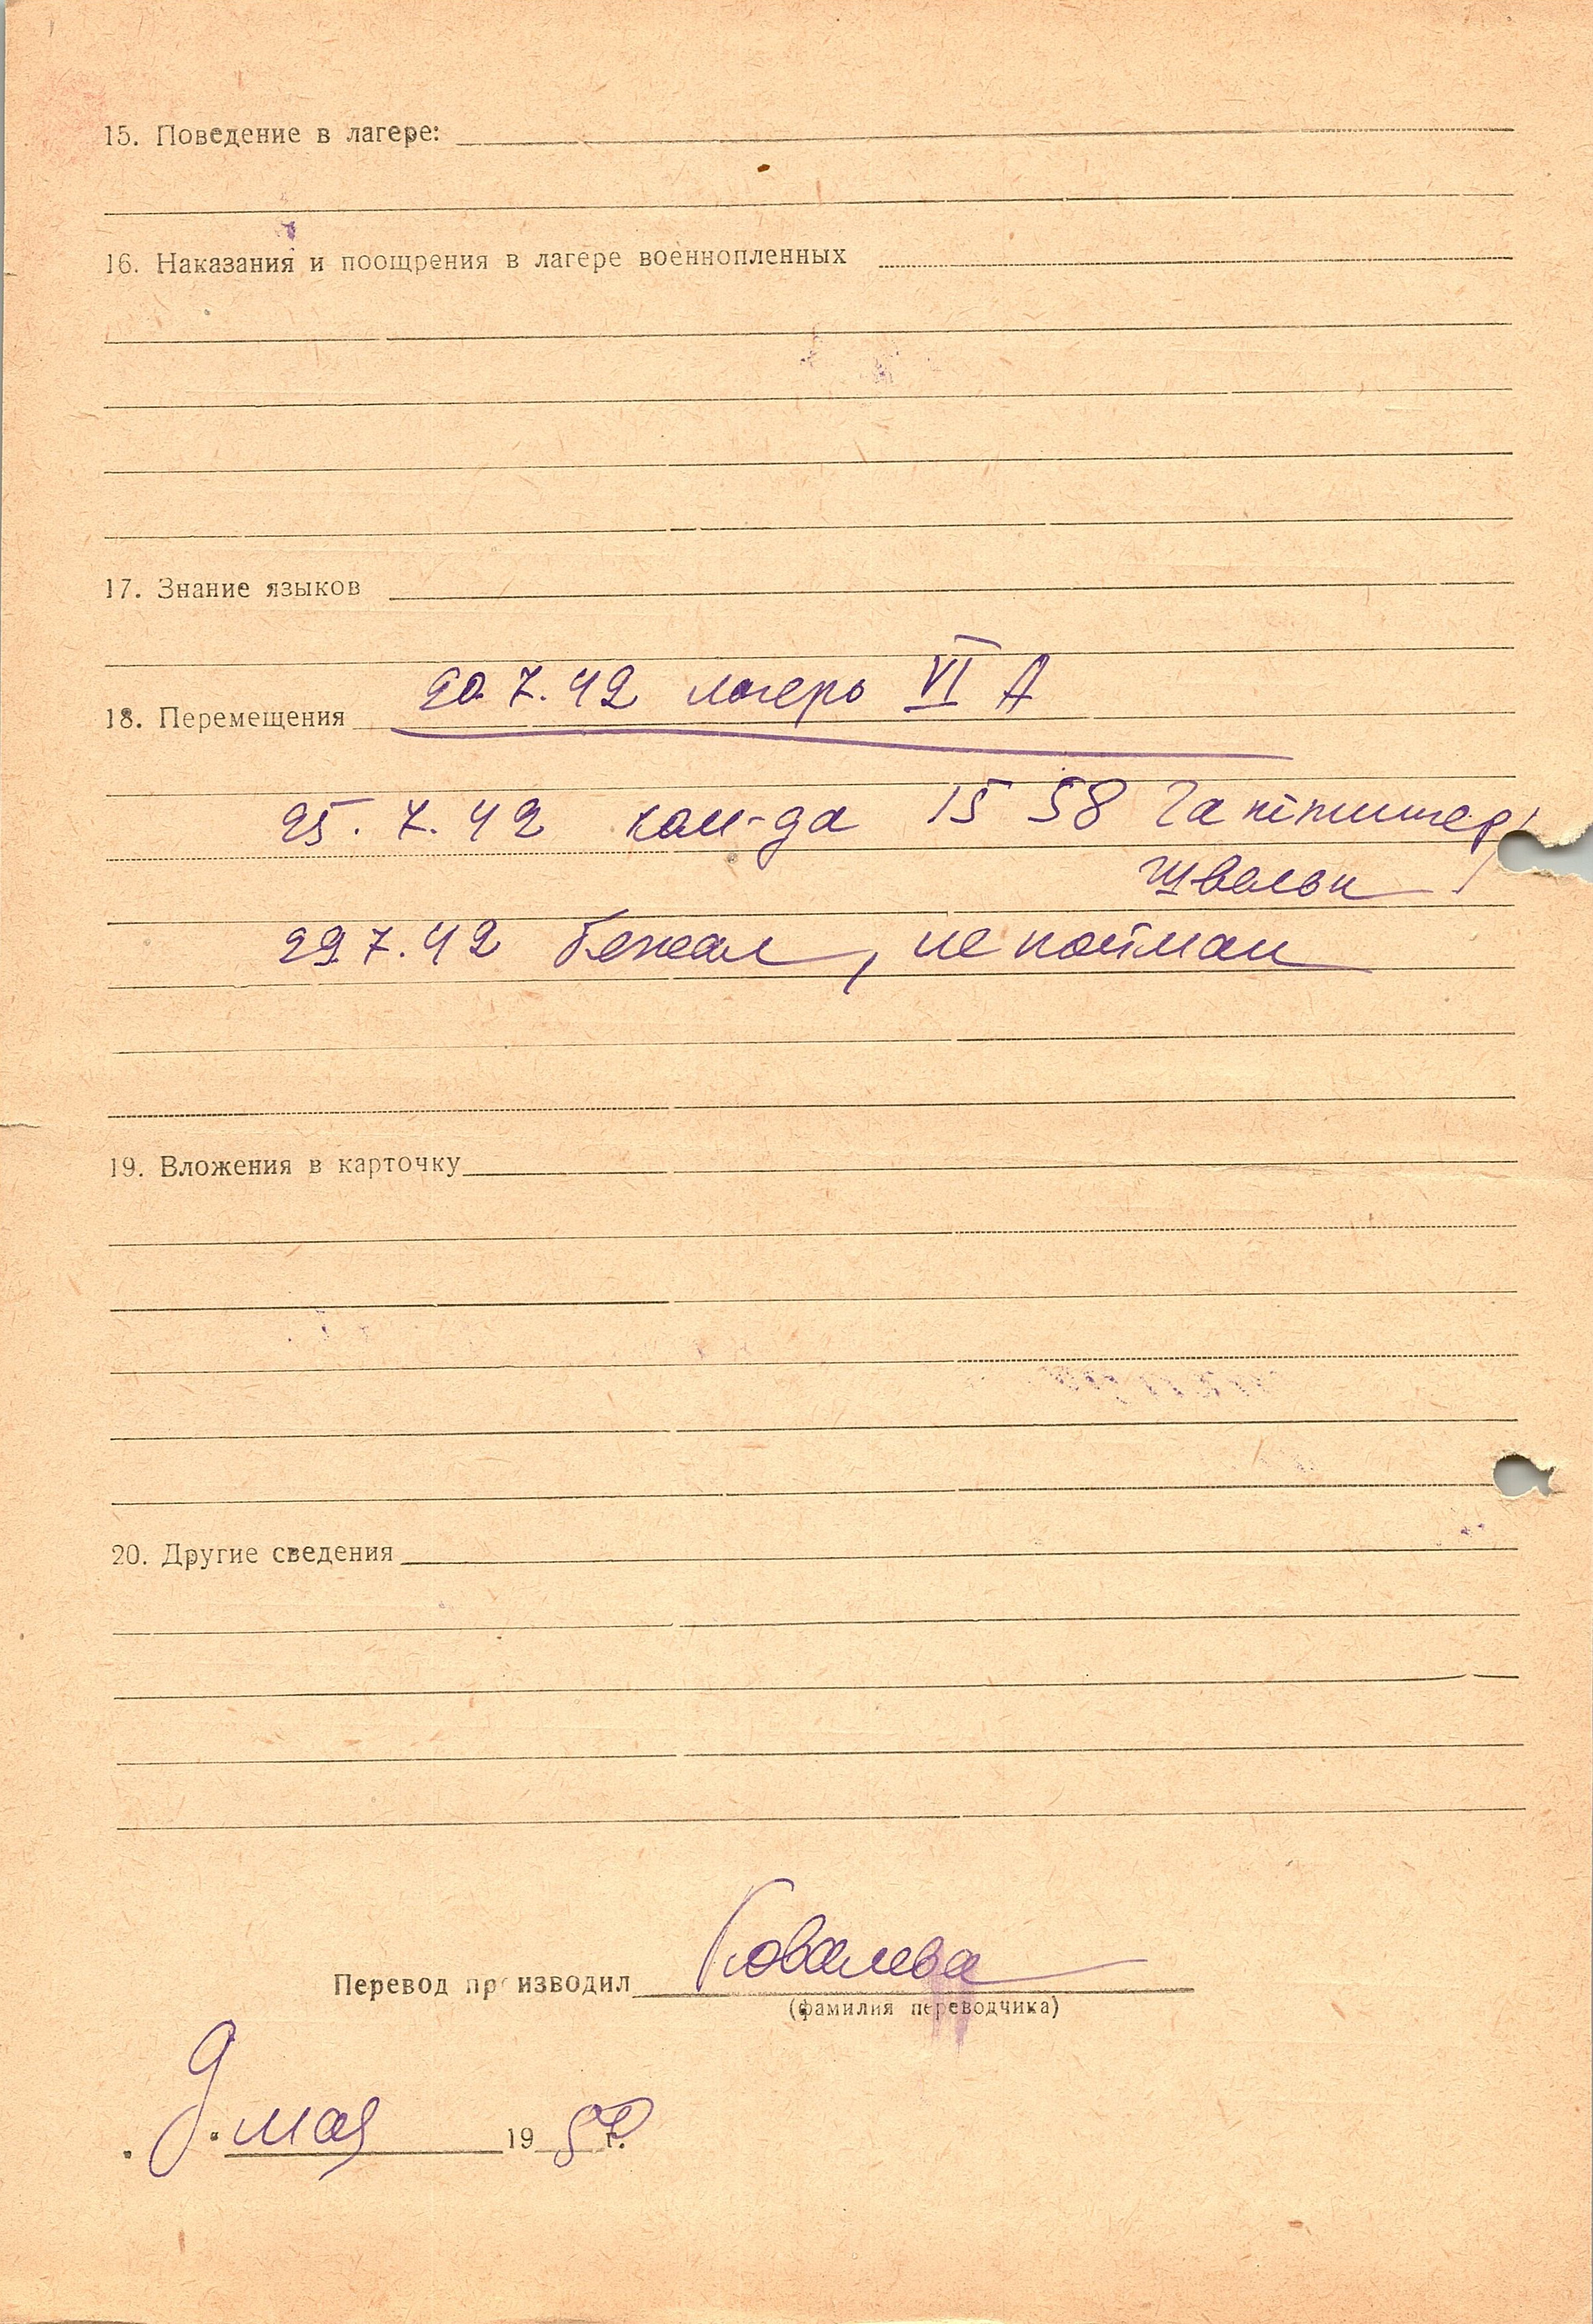 15. Поведение в лагере:
16. Наказания и поощрения в лагере военнопленных
17. Знание языков
20.7.42 лагерь VI А
18. Перемещения
25.7.42 ком-да 15 58
29.7.42 бежал, не пойман
19. Вложения в карточку
20. Другие сведения
Перевод производил Ковалева
(фамилия переводчика)
9 мая 19 г.